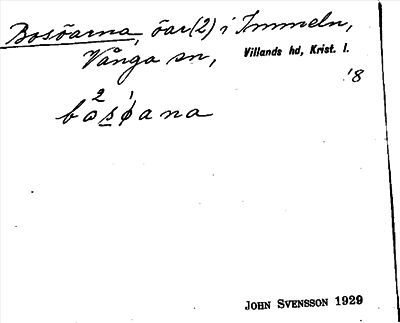 Bosöarna, öar(2) i Immeln,
Vånga sn, Villands hd, Krist. l.
18
2 1
bosøana
JOHN SVENSSON 1929